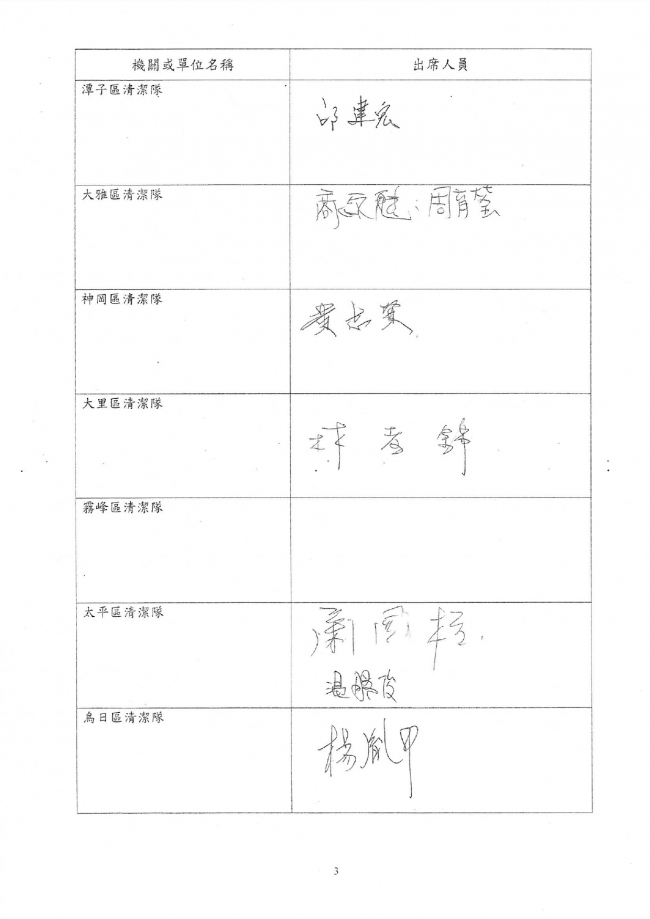 機關或單位名稱
出席人員
潭子區清潔隊
邱建宏
大雅區清潔隊
周育瑩
神岡區清潔隊
黃志英
大里區清潔隊
林孝錦
霧峰區清潔隊
太平區清潔隊
烏日區清潔隊
楊胤甲
3